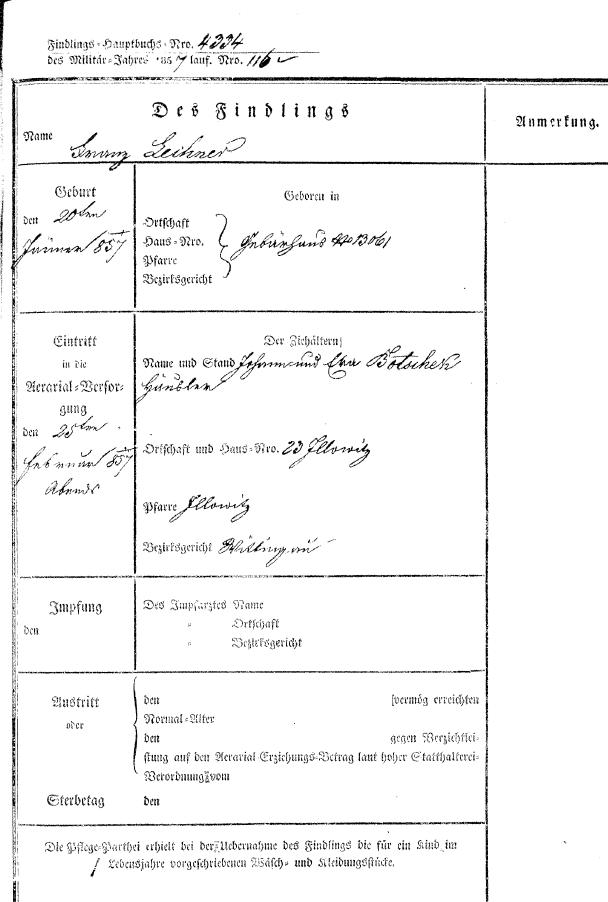 Findlings-Hauptbuchs-Nro. 4334
des Militär-Jahres 1857 lauf. Nro. 116
Des Findlings
Anmerkung.
Name
Franz Leichner
Geburt
den 20ten
Jänner 857
Geboren in
Ortschaft
Haus-Nro.
Pfarre
Bezirksgericht
Gebärhaus No 13061
Eintritt
in die
Aerarial-Versor-
gung
den 25ten
Februar 857
Abends
Der Ziehältern
Name und Stand Johann und Eva Botschek
Häusler
Ortschaft und Haus-Nro. 23 Illowitz
Pfarre Illowitz
Bezirksgericht Wittingau
Impfung
den
Des Impfarztes Name
" Ortschaft
" Bezirksgericht
Austritt
oder
den vermög erreichten
Normal-Alter
den gegen Verzichtlei-
stung auf den Aerarial Erziehungs-Betrag laut hoher Statthalterei-
Verordnung vom
Sterbetag den
Die Pflege-Parthei erhielt bei der Uebernahme des Findlings die für ein Kind im
1 Lebensjahre vorgeschriebenen Wäsch- und Kleidungsstücke.